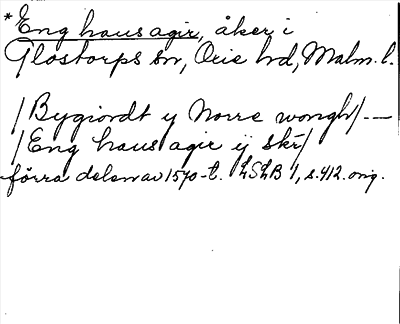 *Eng haus agir, åker i
Glostorps sn, Oxie hd, Malm. l.
/Bygiordt y Norre wongh/ --
/Eng haus agir ij skr/
förra delen av 1570-t. LSLB 1, s. 412. orig.